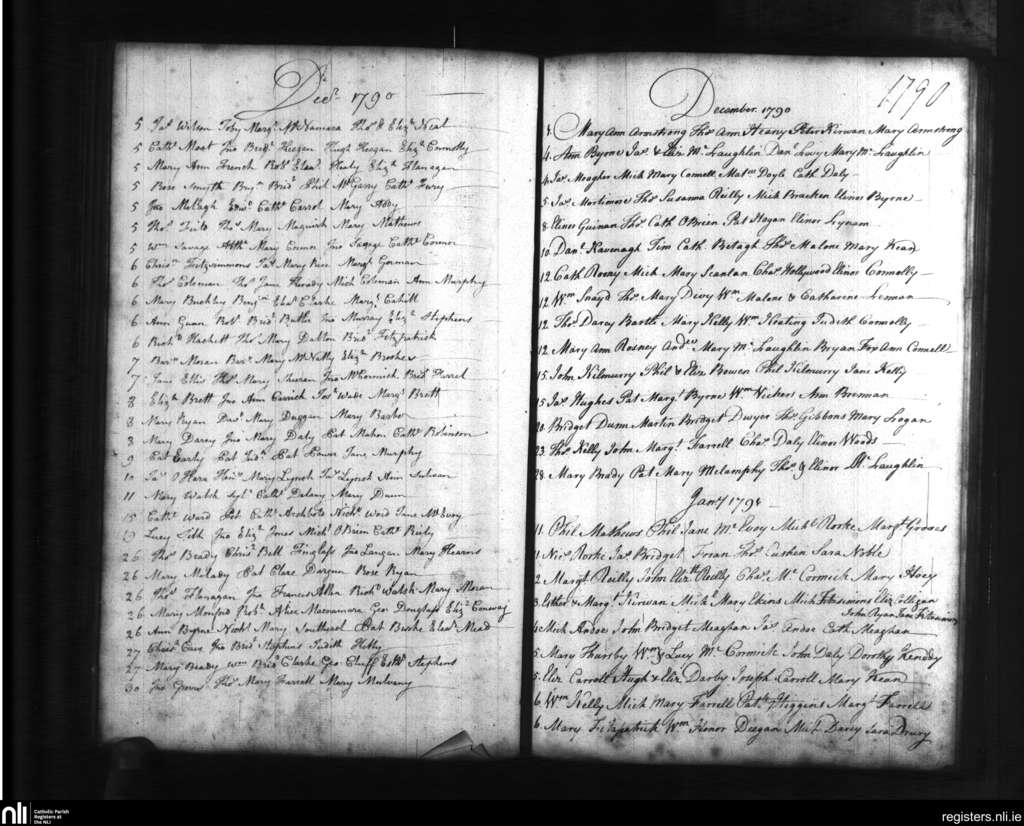 Decr. 1790
5 Jas. Wilson Toby Margt. McNamara Thos. & Elizth. Neal
5 Cathe. Moat Jno Bridt. Keegan Hugh Keegan Elizth. Connolly
5 Mary Ann French Robt. Elear. Healy Elizth. Flanagan
5 Rose Smyth Bryn. Bridt. Phil McGarry Cathe. Furey
5 Jno McCagh Edwd. Cathe. Carrol Mary Abby
5 Thos. Thos. Mary Maguirk Mary Mathews
5 Wm. Savage Arthr. Mary Connor Jno Savage Cathe. Connor
6 Chrisr. Fitzsimmons Jas. Mary Rice Margt. Gorman
6 Thos. Coleman Thos. Jane Mich Coleman Ann Murphy
6 Mary Buckley Benjn. Elear. Clarke Margt. Cahill
6 Ann Robt. Bridt. Butler Jno Murray Elizth. Stephens
6 Richd. Hackett Thos. Mary Dalton Bridt. Fitzpatrick
7 Moran Mary McNally Elizth. Brosker
7 Jane Ellis Thos. Mary Jno McCormick Bridt. Farrel
8 Elizth. Brett Jno Ann Carrick Jos. Wade Margt. Brett
8 Mary Ryan Mary Duggan Mary Barber
8 Mary Darcy Jno Mary Daly Pat Mahon Cathe. Robinson
9 Pat Early Pat Pat Power Jane Murphy
10 Jas. O'Hara Mary Lynch Jas. Lynch Ann
11 Mary Walsh Cathe. Delany Mary Dunn
15 Cathe. Ward Pat Cathe. Archbold Nichs. Ward Jane McEvoy
19 Lucy Jno Elizth. Jones Michl. O'Brien Cathe. Reily
26 Thos. Brady Chrisr. Bell Finglass Jno Langan Mary Hearns
26 Mary Melady Pat Clare Rose Ryan
26 Thos. Flanagan Jno Frances Allen Richd. Walsh Mary Moran
26 Mary Robt. Alice Macnamara Geo Douglass Elizth. Conway
26 Ann Byrne Nichs. Mary Southwel Pat Burke Elear. Mead
27 Christ. Cave Jno Bridt. Stephens Judith
27 Mary Beady Wm. Bridt. Clarke Geo Esthr. Stephens
30 Jno Thos. Mary Farrell Mary Mulvany
1790
December 1790
1. Mary Ann Armstrong Thos. Ann Heany Peter Kirwan Mary Armstrong
4. Ann Byrne Jas. & Eliz. McLaughlin Danl. Levy Mary McLaughlin
4 Jas. Meagher Mich Mary Connell Matw. Doyle Cath Daly
5 Jas. Mortimore Thos. Susanna Reilly Mich Bracken Elinor Byrne
8 Elinor Guinan Thos. Cath OBrien Pat Hagan Elinor Lynam
10 Danl. Kavenagh Tim Cath Betagh Thos. Malone Mary Kead
12 Cath Roony Mich Mary Scanlan Chas. Hollywood Elinor Connolly
12 Wm. Snayd Thos. Mary Divy Wm. Malone & Catharine Leman
12 Thos. Darcy Bartle Mary Kelly Wm. Keating Judith Connolly
12 Mary Ann Rosney Andw. Mary McLaughlin Bryan Fox Ann Connell
15 John Kilmurry Phil & Eliz Bowen Phil Kilmurry Jane Kelly
15 Jas. Hughes Pat Margt. Byrne Wm. Vickers Ann Brennan
20 Bridget Dunn Martin Bridget Dwyer Thos. Gibbons Mary Logan
23 Thos. Kelly John Margt. Farrell Chas. Daly Elinor Wards
28 Mary Brady Pat Mary Melamphy Thos. & Elinor McLaughlin
Jany. 1791
1. Phil Mathews Phil Jane McEvoy Michl. Rorke Margt. Groves
1. Nics. Rorke Jas. Bridget Thos. Cushen Sara Noble
2. Margt. Reilly John Elizth. Reilly Chas. McCormick Mary Hoey
3. Esther & Margt. Kirwan Michl. Mary Ekins Mich Fitzsimons Eliz Gilligan
John Ryan Jane Fitzsimons
4 Mich Andoe John Bridget Meaghan Jas. Andoe Cath Meaghan
5 Mary Thursby Wm. & Lucy McCormick John Daly Dorothy Kenedy
5. Eliz Carroll Hugh & Eliz Darby Joseph Carroll Mary Kean
6. Wm. Kelly Mich Mary Farrell Patk. Higgins Margt. Farrell
6. Mary Fitzpatrick Wm. Honor Deegan Michl. Darcy Sara Drury
nli
Catholic Parish
Registers at
the NLI
registers.nli.ie